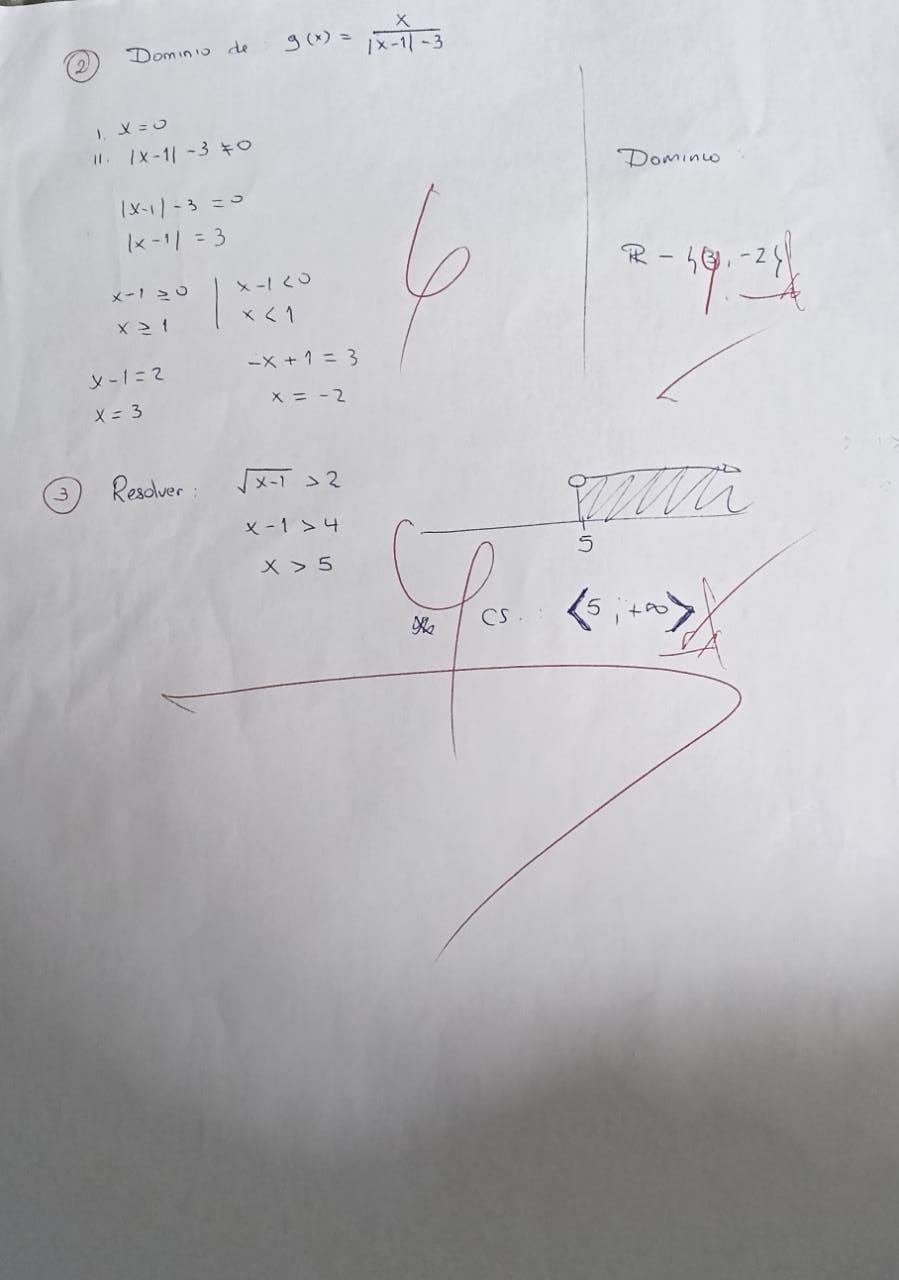 2 Dominio de : g(x) = x / |x-1| - 3
I. x = 0
II. |x-1| - 3 ≠ 0
|x-1| - 3 = 0
|x-1| = 3
x-1 ≥ 0 | x-1 < 0
x ≥ 1 | x < 1
x-1 = 2 -x + 1 = 3
x = 3 x = -2
Dominio :
ℝ - {3, -2}
3 Resolver : √x-1 > 2
x - 1 > 4
x > 5
5
CS. : <5 ; +∞>